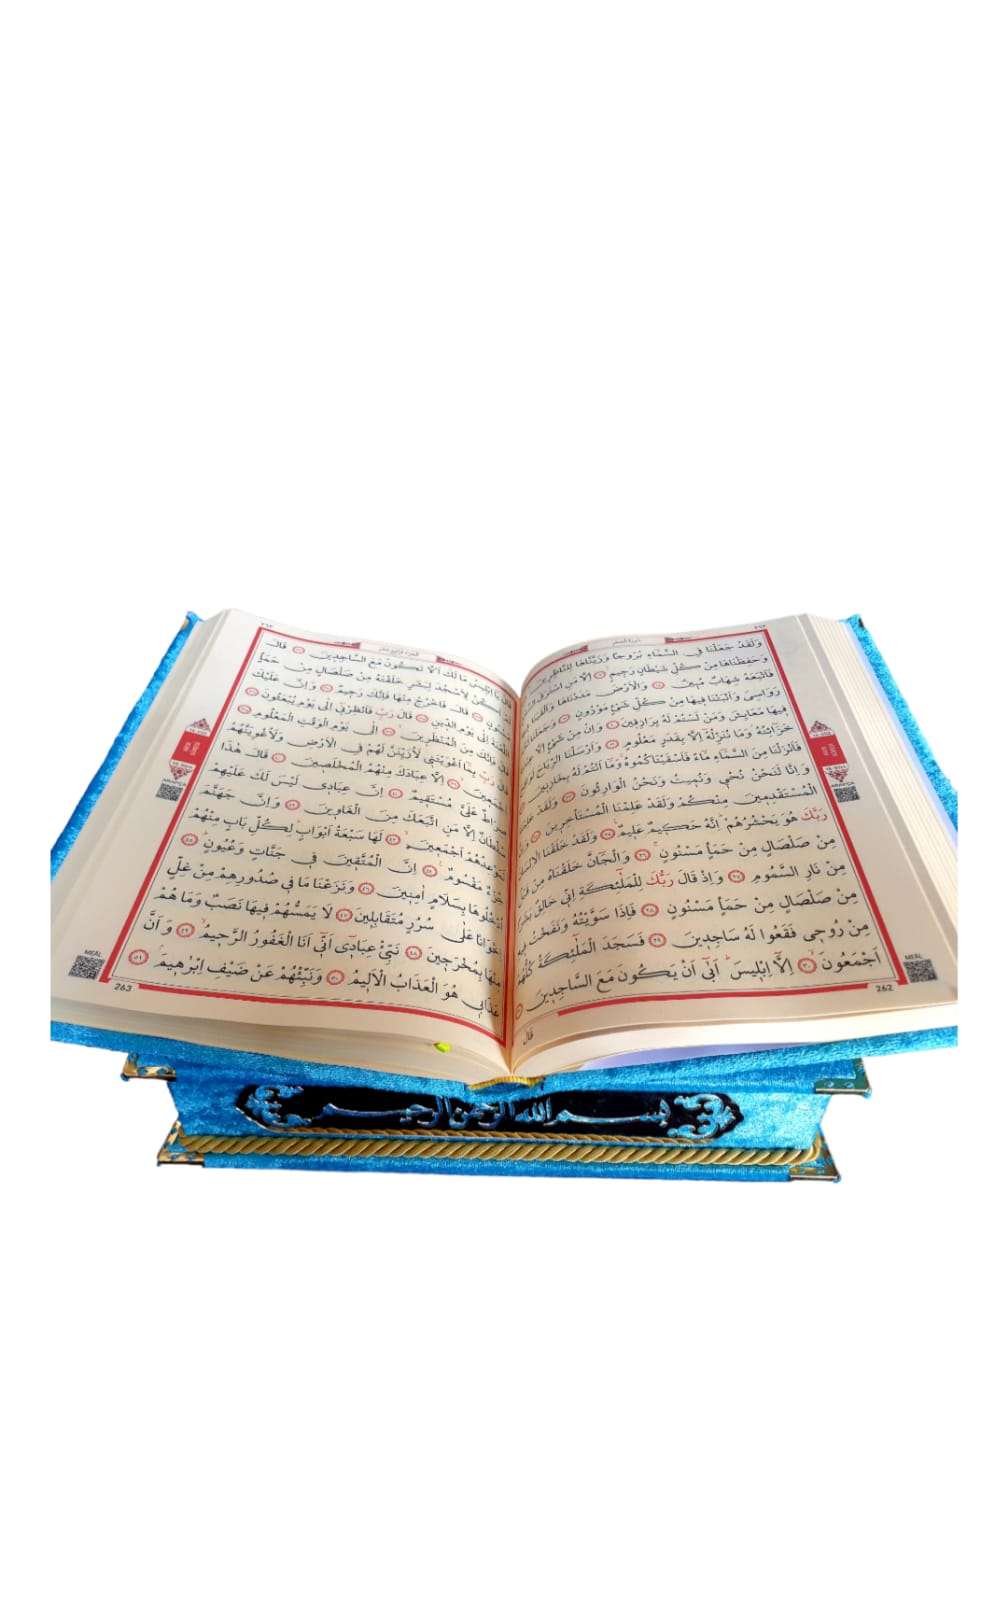 ٢٦٢
وَلَقَدْ جَعَلْنَا فِي السَّمَٓاءِ بُرُوجًا وَزَيَّنَّاهَا لِلنَّاظِرِينَ
وَحَفِظْنَاهَا مِنْ كُلِّ شَيْطَانٍ رَجِيمٍ ١٧ اِلَّا مَنِ اسْتَرَقَ
فَاَتْبَعَهُ شِهَابٌ مُبِينٌ ١٨ وَالْاَرْضَ مَدَدْنَاهَا وَاَلْقَيْنَا
رَوَاسِيَ وَاَنْبَتْنَا فِيهَا مِنْ كُلِّ شَيْءٍ مَوْزُونٍ ١٩ وَجَعَلْنَا
فِيهَا مَعَايِشَ وَمَنْ لَسْتُمْ لَهُ بِرَازِقِينَ ٢٠ وَاِنْ مِنْ شَيْءٍ اِلَّا
خَزَٓائِنُهُ وَمَا نُنَزِّلُهُٓ اِلَّا بِقَدَرٍ مَعْلُومٍ ٢١ وَاَرْسَلْنَا الرِّيَاحَ
فَاَنْزَلْنَا مِنَ السَّمَٓاءِ مَٓاءً فَاَسْقَيْنَاكُمُوهُ وَمَٓا اَنْتُمْ لَهُ بِخَازِنِينَ
وَاِنَّا لَنَحْنُ نُحْيِي وَنُمِيتُ وَنَحْنُ الْوَارِثُونَ ٢٣ وَلَقَدْ
الْمُسْتَقْدِمِينَ مِنْكُمْ وَلَقَدْ عَلِمْنَا الْمُسْتَأْخِرِينَ ٢٤ وَاِنَّ
رَبَّكَ هُوَ يَحْشُرُهُمْ اِنَّهُ حَكِيمٌ عَلِيمٌ ٢٥ وَلَقَدْ خَلَقْنَا الْاِنْسَانَ
مِنْ صَلْصَالٍ مِنْ حَمَأٍ مَسْنُونٍ ٢٦ وَالْجَٓانَّ خَلَقْنَاهُ مِنْ قَبْلُ
مِنْ نَارِ السَّمُومِ ٢٧ وَاِذْ قَالَ رَبُّكَ لِلْمَلٰٓئِكَةِ اِنِّي خَالِقٌ بَشَرًا
مِنْ صَلْصَالٍ مِنْ حَمَأٍ مَسْنُونٍ ٢٨ فَاِذَا سَوَّيْتُهُ وَنَفَخْتُ فِيهِ
مِنْ رُوحِي فَقَعُوا لَهُ سَاجِدِينَ ٢٩ فَسَجَدَ الْمَلٰٓئِكَةُ كُلُّهُمْ
اَجْمَعُونَ ٣٠ اِلَّٓا اِبْلِيسَ اَبٰٓى اَنْ يَكُونَ مَعَ السَّاجِدِينَ
قَالَ
MEAL
262
٢٦٣
قَالَ يَٓا اِبْلِيسُ مَا لَكَ اَلَّا تَكُونَ مَعَ السَّاجِدِينَ ٣٢ قَالَ
لَمْ اَكُنْ لِاَسْجُدَ لِبَشَرٍ خَلَقْتَهُ مِنْ صَلْصَالٍ مِنْ حَمَأٍ
مَسْنُونٍ ٣٣ قَالَ فَاخْرُجْ مِنْهَا فَاِنَّكَ رَجِيمٌ ٣٤ وَاِنَّ عَلَيْكَ
اللَّعْنَةَ اِلٰى يَوْمِ الدِّينِ ٣٥ قَالَ رَبِّ فَاَنْظِرْنِٓي اِلٰى يَوْمِ يُبْعَثُونَ ٣٦
قَالَ فَاِنَّكَ مِنَ الْمُنْظَرِينَ ٣٧ اِلٰى يَوْمِ الْوَقْتِ الْمَعْلُومِ ٣٨
قَالَ رَبِّ بِمَٓا اَغْوَيْتَنِي لَاُزَيِّنَنَّ لَهُمْ فِي الْاَرْضِ وَلَاُغْوِيَنَّهُمْ
اَجْمَعِينَ ٣٩ اِلَّا عِبَادَكَ مِنْهُمُ الْمُخْلَصِينَ ٤٠ قَالَ هٰذَا
صِرَاطٌ عَلَيَّ مُسْتَقِيمٌ ٤١ اِنَّ عِبَادِي لَيْسَ لَكَ عَلَيْهِمْ
سُلْطَانٌ اِلَّا مَنِ اتَّبَعَكَ مِنَ الْغَاوِينَ ٤٢ وَاِنَّ جَهَنَّمَ
لَمَوْعِدُهُمْ اَجْمَعِينَ ٤٣ لَهَا سَبْعَةُ اَبْوَابٍ لِكُلِّ بَابٍ مِنْهُمْ
جُزْءٌ مَقْسُومٌ ٤٤ اِنَّ الْمُتَّقِينَ فِي جَنَّاتٍ وَعُيُونٍ ٤٥
اُدْخُلُوهَا بِسَلَامٍ اٰمِنِينَ ٤٦ وَنَزَعْنَا مَا فِي صُدُورِهِمْ مِنْ غِلٍّ
اِخْوَانًا عَلٰى سُرُرٍ مُتَقَابِلِينَ ٤٧ لَا يَمَسُّهُمْ فِيهَا نَصَبٌ وَمَا هُمْ
مِنْهَا بِمُخْرَجِينَ ٤٨ نَبِّئْ عِبَادِٓي اَنِّٓي اَنَا الْغَفُورُ الرَّحِيمُ ٤٩ وَاَنَّ
عَذَابِي هُوَ الْعَذَابُ الْاَلِيمُ ٥٠ وَنَبِّئْهُمْ عَنْ ضَيْفِ اِبْرٰهِيمَ ٥١
MEAL
263
بسم الله الرحمن الرحيم